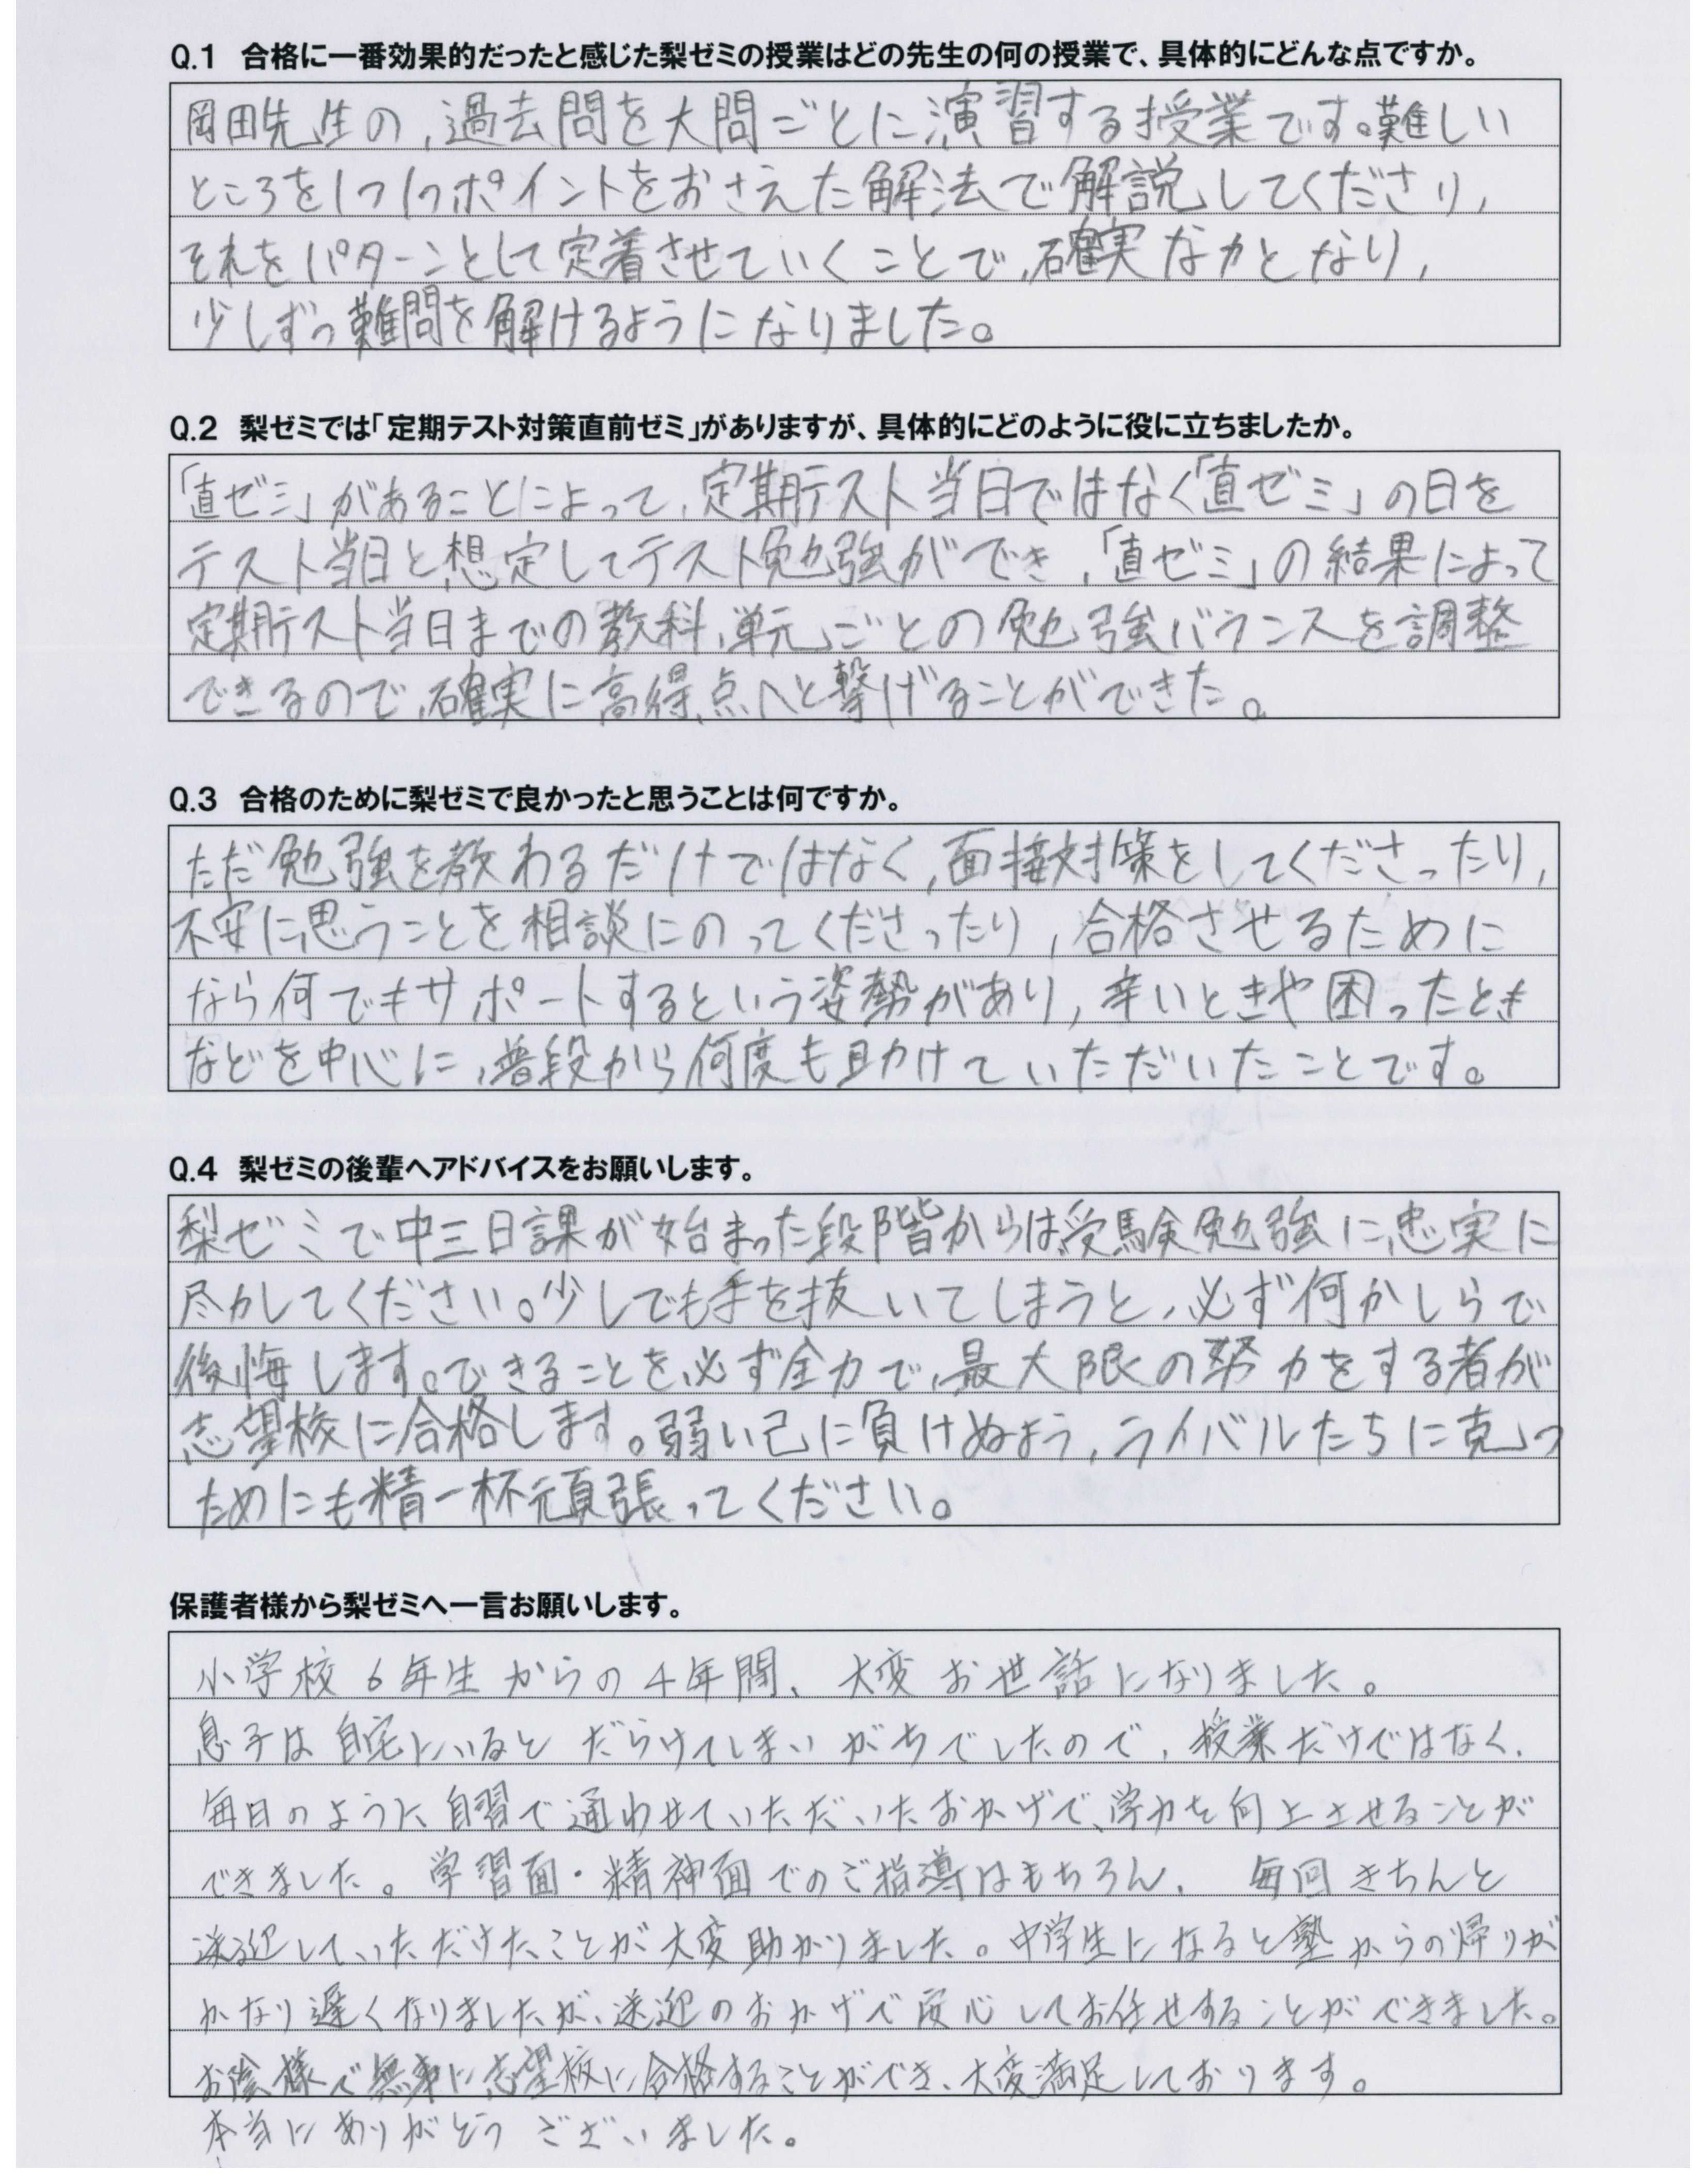 Q.1 合格に一番効果的だったと感じた梨ゼミの授業はどの先生の何の授業で、具体的にどんな点ですか。
岡田先生の,過去問を大問ごとに演習する授業です。難しい
ところを1つ1つポイントをおさえた解法で解説してくださり,
それをパターンとして定着させていくことで,確実な力となり,
少しずつ難問を解けるようになりました。
Q.2 梨ゼミでは「定期テスト対策直前ゼミ」がありますが、具体的にどのように役に立ちましたか。
「直ゼミ」があることによって,定期テスト当日ではなく「直ゼミ」の日を
テスト当日と想定してテスト勉強ができ,「直ゼミ」の結果によって
定期テスト当日までの教科,単元ごとの勉強バランスを調整
できるので,確実に高得点へと繋げることができた。
Q.3 合格のために梨ゼミで良かったと思うことは何ですか。
ただ勉強を教わるだけではなく,面接対策をしてくださったり,
不安に思うことを相談にのってくださったり,合格させるために
なら何でもサポートするという姿勢があり,辛いときや困ったとき
などを中心に,普段から何度も助けていただいたことです。
Q.4 梨ゼミの後輩へアドバイスをお願いします。
梨ゼミで中三日課が始まった段階からは受験勉強に忠実に
尽力してください。少しでも手を抜いてしまうと,必ず何かしらで
後悔します。できることを必ず全力で,最大限の努力をする者が
志望校に合格します。弱い己に負けぬよう,ライバルたちに克つ
ためにも精一杯頑張ってください。
保護者様から梨ゼミへ一言お願いします。
小学校6年生からの4年間、大変お世話になりました。
息子は自宅にいるとだらけてしまいがちでしたので、授業だけではなく、
毎日のように自習で通わせていただいたおかげで、学力を向上させることが
できました。学習面・精神面でのご指導はもちろん、毎回きちんと
送迎していただけたことが大変助かりました。中学生になると塾からの帰りが
かなり遅くなりましたが、送迎のおかげで安心してお任せすることができました。
お陰様で無事に志望校に合格することができ、大変満足しております。
本当にありがとうございました。